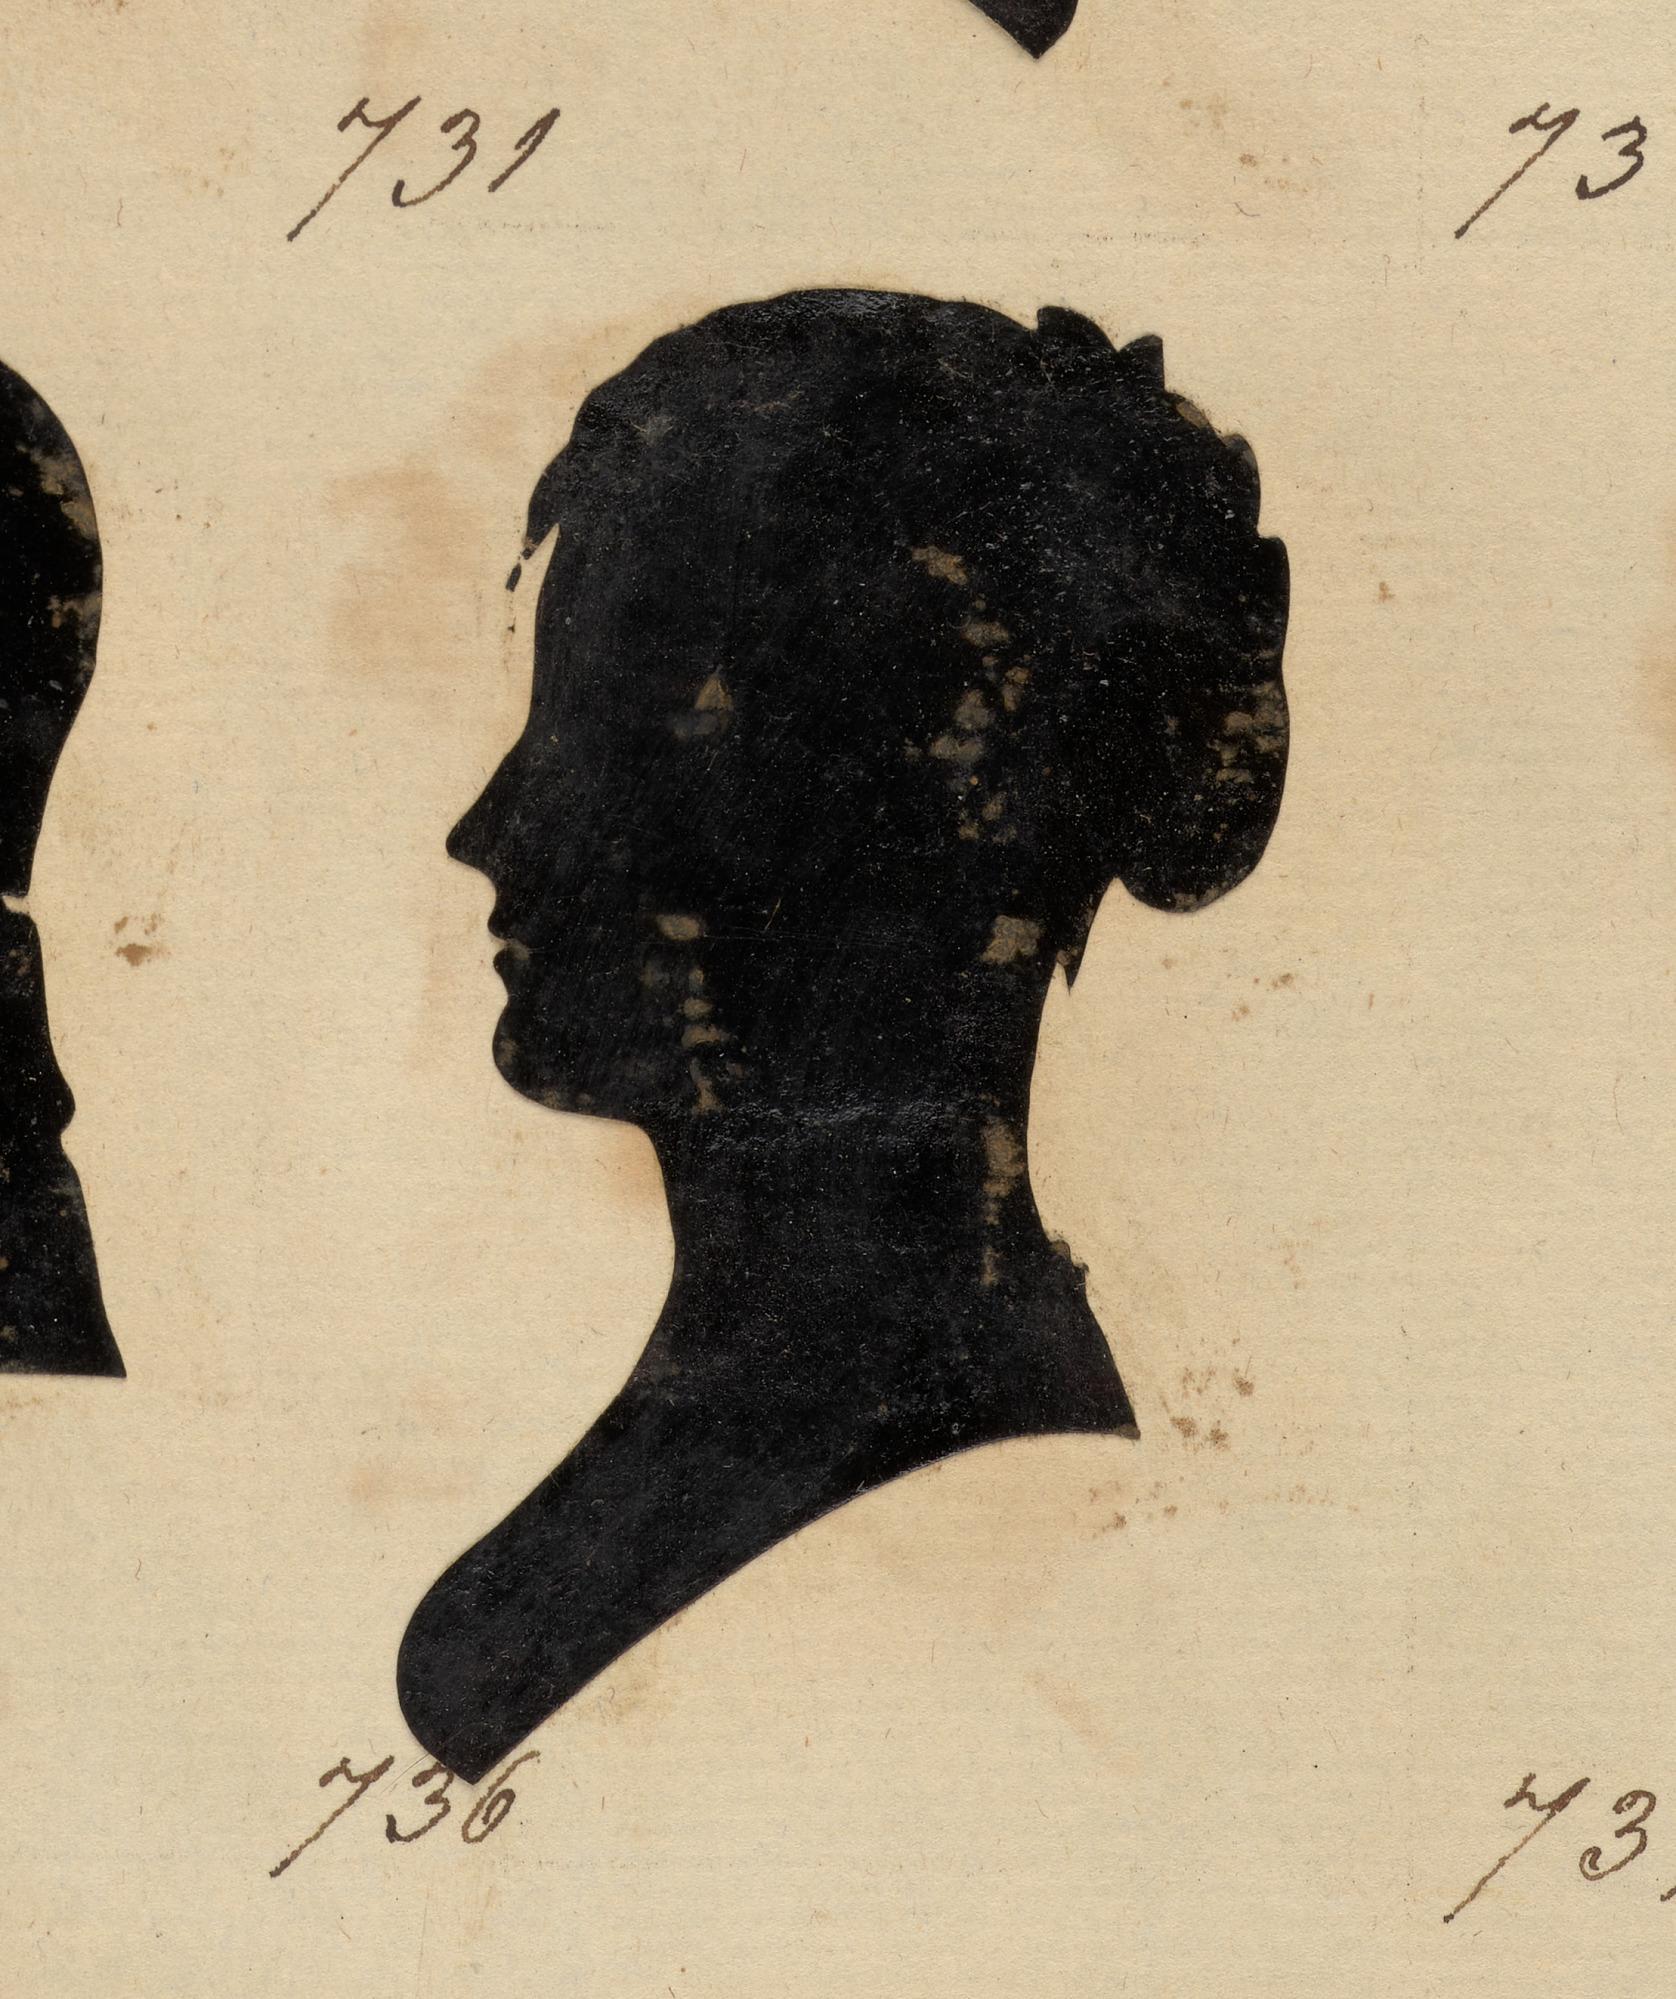 731 73
736 73